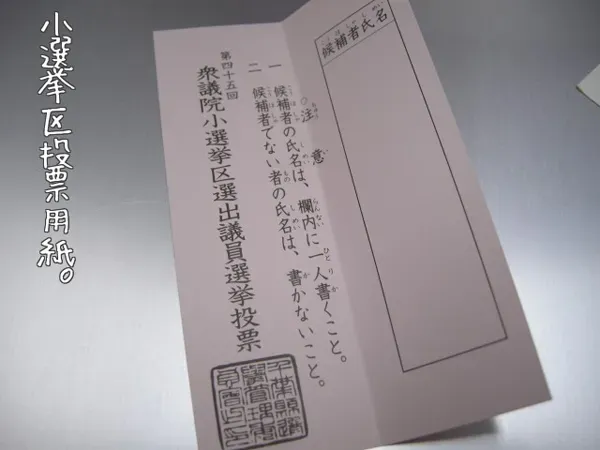 候補者氏名
◎注意
一 候補者の氏名は、欄内に一人書くこと。
二 候補者でない者の氏名は、書かないこと。
第四十五回
衆議院小選挙区選出議員選挙投票
小選挙区投票用紙。